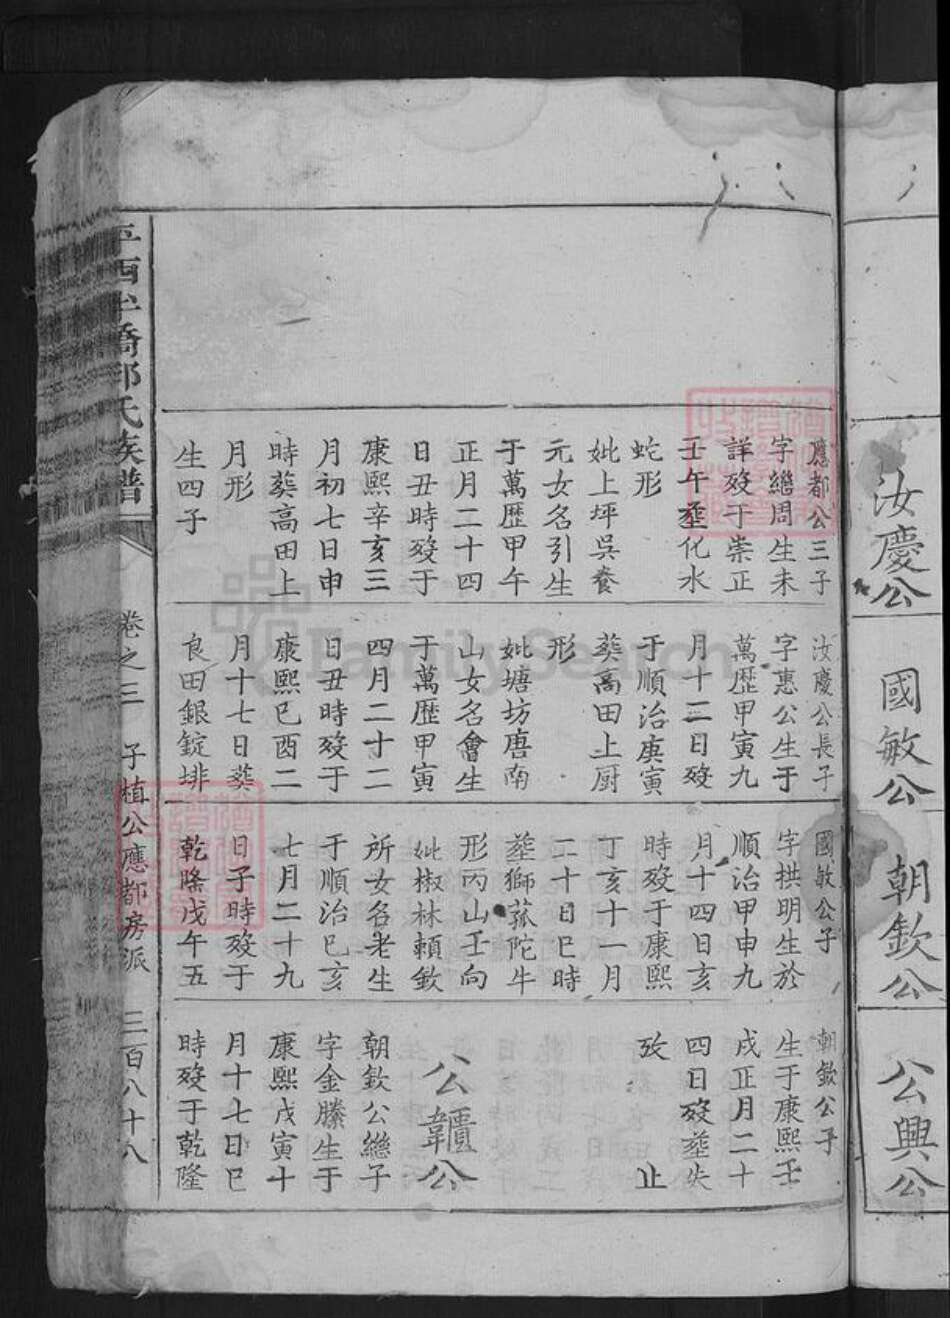 汝慶公
國敏公
朝欽公
公興公
應都公三子
字繼周生未
詳歿于崇正
壬午塟化水
蛇形
妣上坪吳養
元女名引生
于萬歷甲午
正月二十四
日丑時歿于
康熙辛亥三
月初七日申
時葵高田上
月形
生四子
汝慶公長子
字惠公生于
萬歷甲寅九
月十二日歿
于順治庚寅
葵高田上厨
形
妣塘坊唐南
山女名會生
于萬歷甲寅
四月二十二
日丑時歿于
康熙巳酉二
月十七日葵
良田銀錠排
國敏公子
字拱明生於
順治甲申九
月十四日亥
時歿于康熙
丁亥十一月
二十日巳時
塟獅菰陀牛
形丙山壬向
妣椒林頼欽
所女名老生
于順治巳亥
七月二十九
日子時歿于
乾隆戊午五
朝欽公子
生于康熙壬
戌正月二十
四日歿塟失
攷
止
公韞公
朝欽公繼子
字金縢生于
康熙戊寅十
月十七日巳
時歿于乾隆
氏族譜
卷之三
子植公應都房派
三百八十八